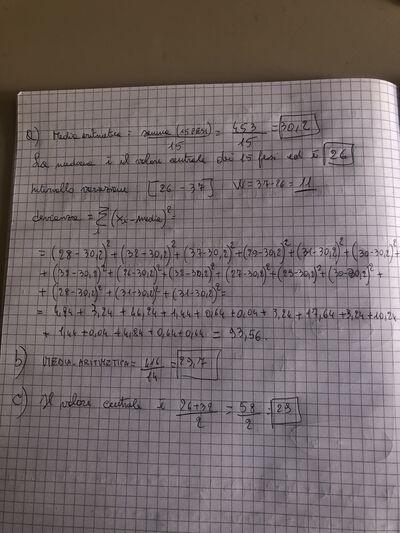 a) Media aritmetica = somma (15 PESI) / 15 = 453 / 15 = 30,2
La mediana è il valore centrale dei 15 pesi ed è 26
intervallo variazione [26 - 37] W = 37-26 = 11
devianza = Σ (xi - media)² =
= (28-30,2)² + (32-30,2)² + (37-30,2)² + (29-30,2)² + (31-30,2)² + (30-30,2)² +
+ (32-30,2)² + (26-30,2)² + (32-30,2)² + (27-30,2)² + (29-30,2)² + (30-30,2)² +
+ (28-30,2)² + (31-30,2)² + (31-30,2)² =
= 4,84 + 3,24 + 46,24 + 1,44 + 0,64 + 0,04 + 3,24 + 17,64 + 3,24 + 10,24
+ 1,44 + 0,04 + 4,84 + 0,64 + 0,64 = 93,56.
b) MEDIA ARITMETICA = 416 / 14 = 29,7
c) Il valore centrale è 26+32 / 2 = 58 / 2 = 29